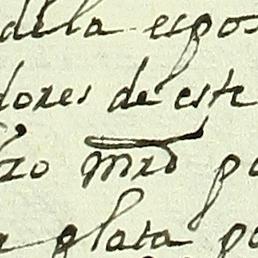 de la espos
dores de este
ro mrd pa
plata pa